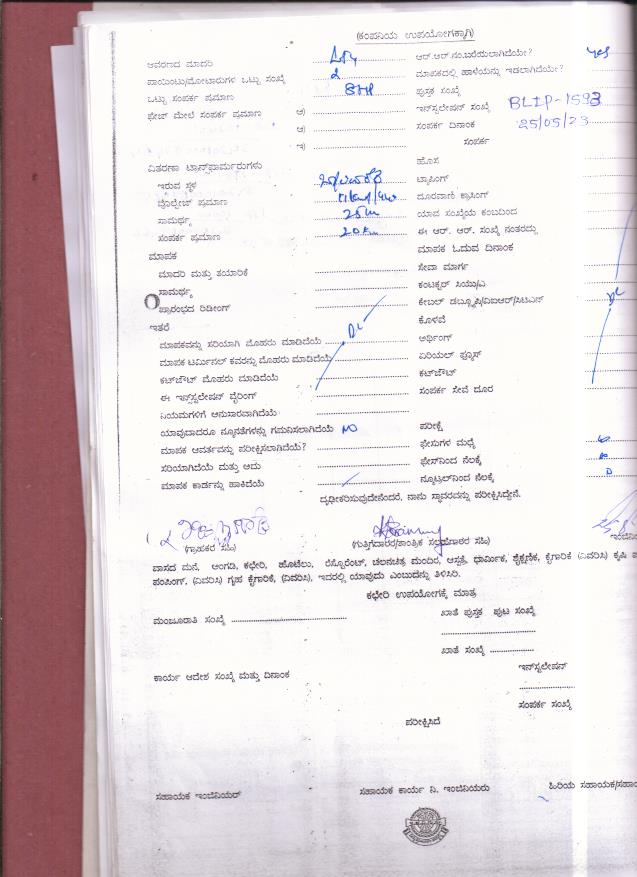 (ಕಂಪನಿಯ ಉಪಯೋಗಕ್ಕಾಗಿ)
ಆವರಣದ ಮಾದರಿ ಆರ್.ಆರ್.ನಂ.ಬರೆಯಲಾಗಿದೆಯೇ? Yes
ಪಾಯಿಂಟು/ಮೋಟಾರುಗಳ ಒಟ್ಟು ಸಂಖ್ಯೆ 2 ಮಾಪಕದಲ್ಲಿ ಹಾಳೆಯನ್ನು ಇಡಲಾಗಿದೆಯೇ?
ಒಟ್ಟು ಸಂಪರ್ಕ ಪ್ರಮಾಣ 8HP ಪುಸ್ತಕ ಸಂಖ್ಯೆ
ಫೇಜ್ ಮೇಲೆ ಸಂಪರ್ಕ ಪ್ರಮಾಣ ಅ) ಇನ್‌ಸ್ಟಲೇಷನ್ ಸಂಖ್ಯೆ BLIP-1593
ಆ) ಸಂಪರ್ಕ ದಿನಾಂಕ 25/05/23
ಇ) ಸಂಪರ್ಕ
ವಿತರಣಾ ಟ್ರಾನ್ಸ್‌ಫಾರ್ಮರುಗಳು ಹೊಸ
ಇರುವ ಸ್ಥಳ ಟ್ಯಾಪಿಂಗ್
ವೊಲ್ಟೇಜ್ ಪ್ರಮಾಣ ದೂರವಾಣಿ ಕ್ರಾಸಿಂಗ್
ಸಾಮರ್ಥ್ಯ 25 ಯಾವ ಸಂಖ್ಯೆಯ ಕಂಬದಿಂದ
ಸಂಪರ್ಕ ಪ್ರಮಾಣ 20 ಈ ಆರ್. ಆರ್. ಸಂಖ್ಯೆ ನಂತರದ್ದು
ಮಾಪಕ ಮಾಪಕ ಓದುವ ದಿನಾಂಕ
ಮಾದರಿ ಮತ್ತು ತಯಾರಿಕೆ ಸೇವಾ ಮಾರ್ಗ
ಸಾಮರ್ಥ್ಯ ಕಂಟಕ್ಟರ್ ಸಿಯು/ಎ
ಪ್ರಾರಂಭದ ರಿಡೀಂಗ್ ಕೇಬಲ್ ಡಬ್ಲ್ಯೂಪಿ/ವಿಐಆರ್/ಸಿಟಿಎಸ್
ಇತರೆ ಕೊಳವೆ
ಮಾಪಕವನ್ನು ಸರಿಯಾಗಿ ಮೊಹರು ಮಾಡಿದೆಯೆ ಅರ್ಥಿಂಗ್
ಮಾಪಕ ಟರ್ಮಿನಲ್ ಕವರನ್ನು ಮೊಹರು ಮಾಡಿದೆಯೆ ಏರಿಯಲ್ ಫ್ಯೂಸ್
ಕಟ್‌ಔಟ್ ಮೊಹರು ಮಾಡಿದೆಯೆ ಕಟ್‌ಔಟ್
ಈ ಇನ್‌ಸ್ಟಲೇಷನ್ ವೈರಿಂಗ್ ಸಂಪರ್ಕ ಸೇವೆ ದೂರ
ನಿಯಮಗಳಿಗೆ ಅನುಸಾರವಾಗಿದೆಯೆ
ಯಾವುದಾದರೂ ನ್ಯೂನತೆಗಳನ್ನು ಗಮನಿಸಲಾಗಿದೆಯೆ NO ಪರೀಕ್ಷೆ
ಮಾಪಕ ಆವರ್ತವನ್ನು ಪರೀಕ್ಷಿಸಲಾಗಿದೆಯೆ? ಫೇಸುಗಳ ಮಧ್ಯೆ
ಸರಿಯಾಗಿದೆಯೆ ಮತ್ತು ಅದು ಫೇಸ್‌ನಿಂದ ನೆಲಕ್ಕೆ
ಮಾಪಕ ಕಾರ್ಡನ್ನು ಹಾಕಿದೆಯೆ ನ್ಯೂಟ್ರಲ್‌ನಿಂದ ನೆಲಕ್ಕೆ
ದೃಢೀಕರಿಸುವುದೇನೆಂದರೆ, ನಾನು ಸ್ಥಾವರವನ್ನು ಪರೀಕ್ಷಿಸಿದ್ದೇನೆ.
(ಗ್ರಾಹಕರ ಸಹಿ) (ಗುತ್ತಿಗೆದಾರರ/ತಾಂತ್ರಿಕ ಸಲಹೆಗಾರರ ಸಹಿ)
ವಾಸದ ಮನೆ, ಅಂಗಡಿ, ಕಛೇರಿ, ಹೊಟೆಲು, ರೆಸ್ಟೋರೆಂಟ್, ಚಲನಚಿತ್ರ ಮಂದಿರ, ಆಸ್ಪತ್ರೆ, ಧಾರ್ಮಿಕ, ಶೈಕ್ಷಣಿಕ, ಕೈಗಾರಿಕೆ (ವಿವರಿಸಿ) ಕೃಷಿ
ಪಂಪಿಂಗ್, (ವಿವರಿಸಿ) ಗೃಹ ಕೈಗಾರಿಕೆ, (ವಿವರಿಸಿ), ಇದರಲ್ಲಿ ಯಾವುದು ಎಂಬುದನ್ನು ತಿಳಿಸಿರಿ.
ಕಛೇರಿ ಉಪಯೋಗಕ್ಕೆ ಮಾತ್ರ
ಮಂಜೂರಾತಿ ಸಂಖ್ಯೆ ಖಾತೆ ಪುಸ್ತಕ ಪುಟ ಸಂಖ್ಯೆ
ಖಾತೆ ಸಂಖ್ಯೆ
ಕಾರ್ಯ ಆದೇಶ ಸಂಖ್ಯೆ ಮತ್ತು ದಿನಾಂಕ ಇನ್‌ಸ್ಟಲೇಷನ್
ಸಂಪರ್ಕ ಸಂಖ್ಯೆ
ಪರೀಕ್ಷಿಸಿದೆ
ಸಹಾಯಕ ಇಂಜಿನಿಯರ್ ಸಹಾಯಕ ಕಾರ್ಯ ನಿ. ಇಂಜಿನಿಯರು ಹಿರಿಯ ಸಹಾಯಕ/ಸಹಾ